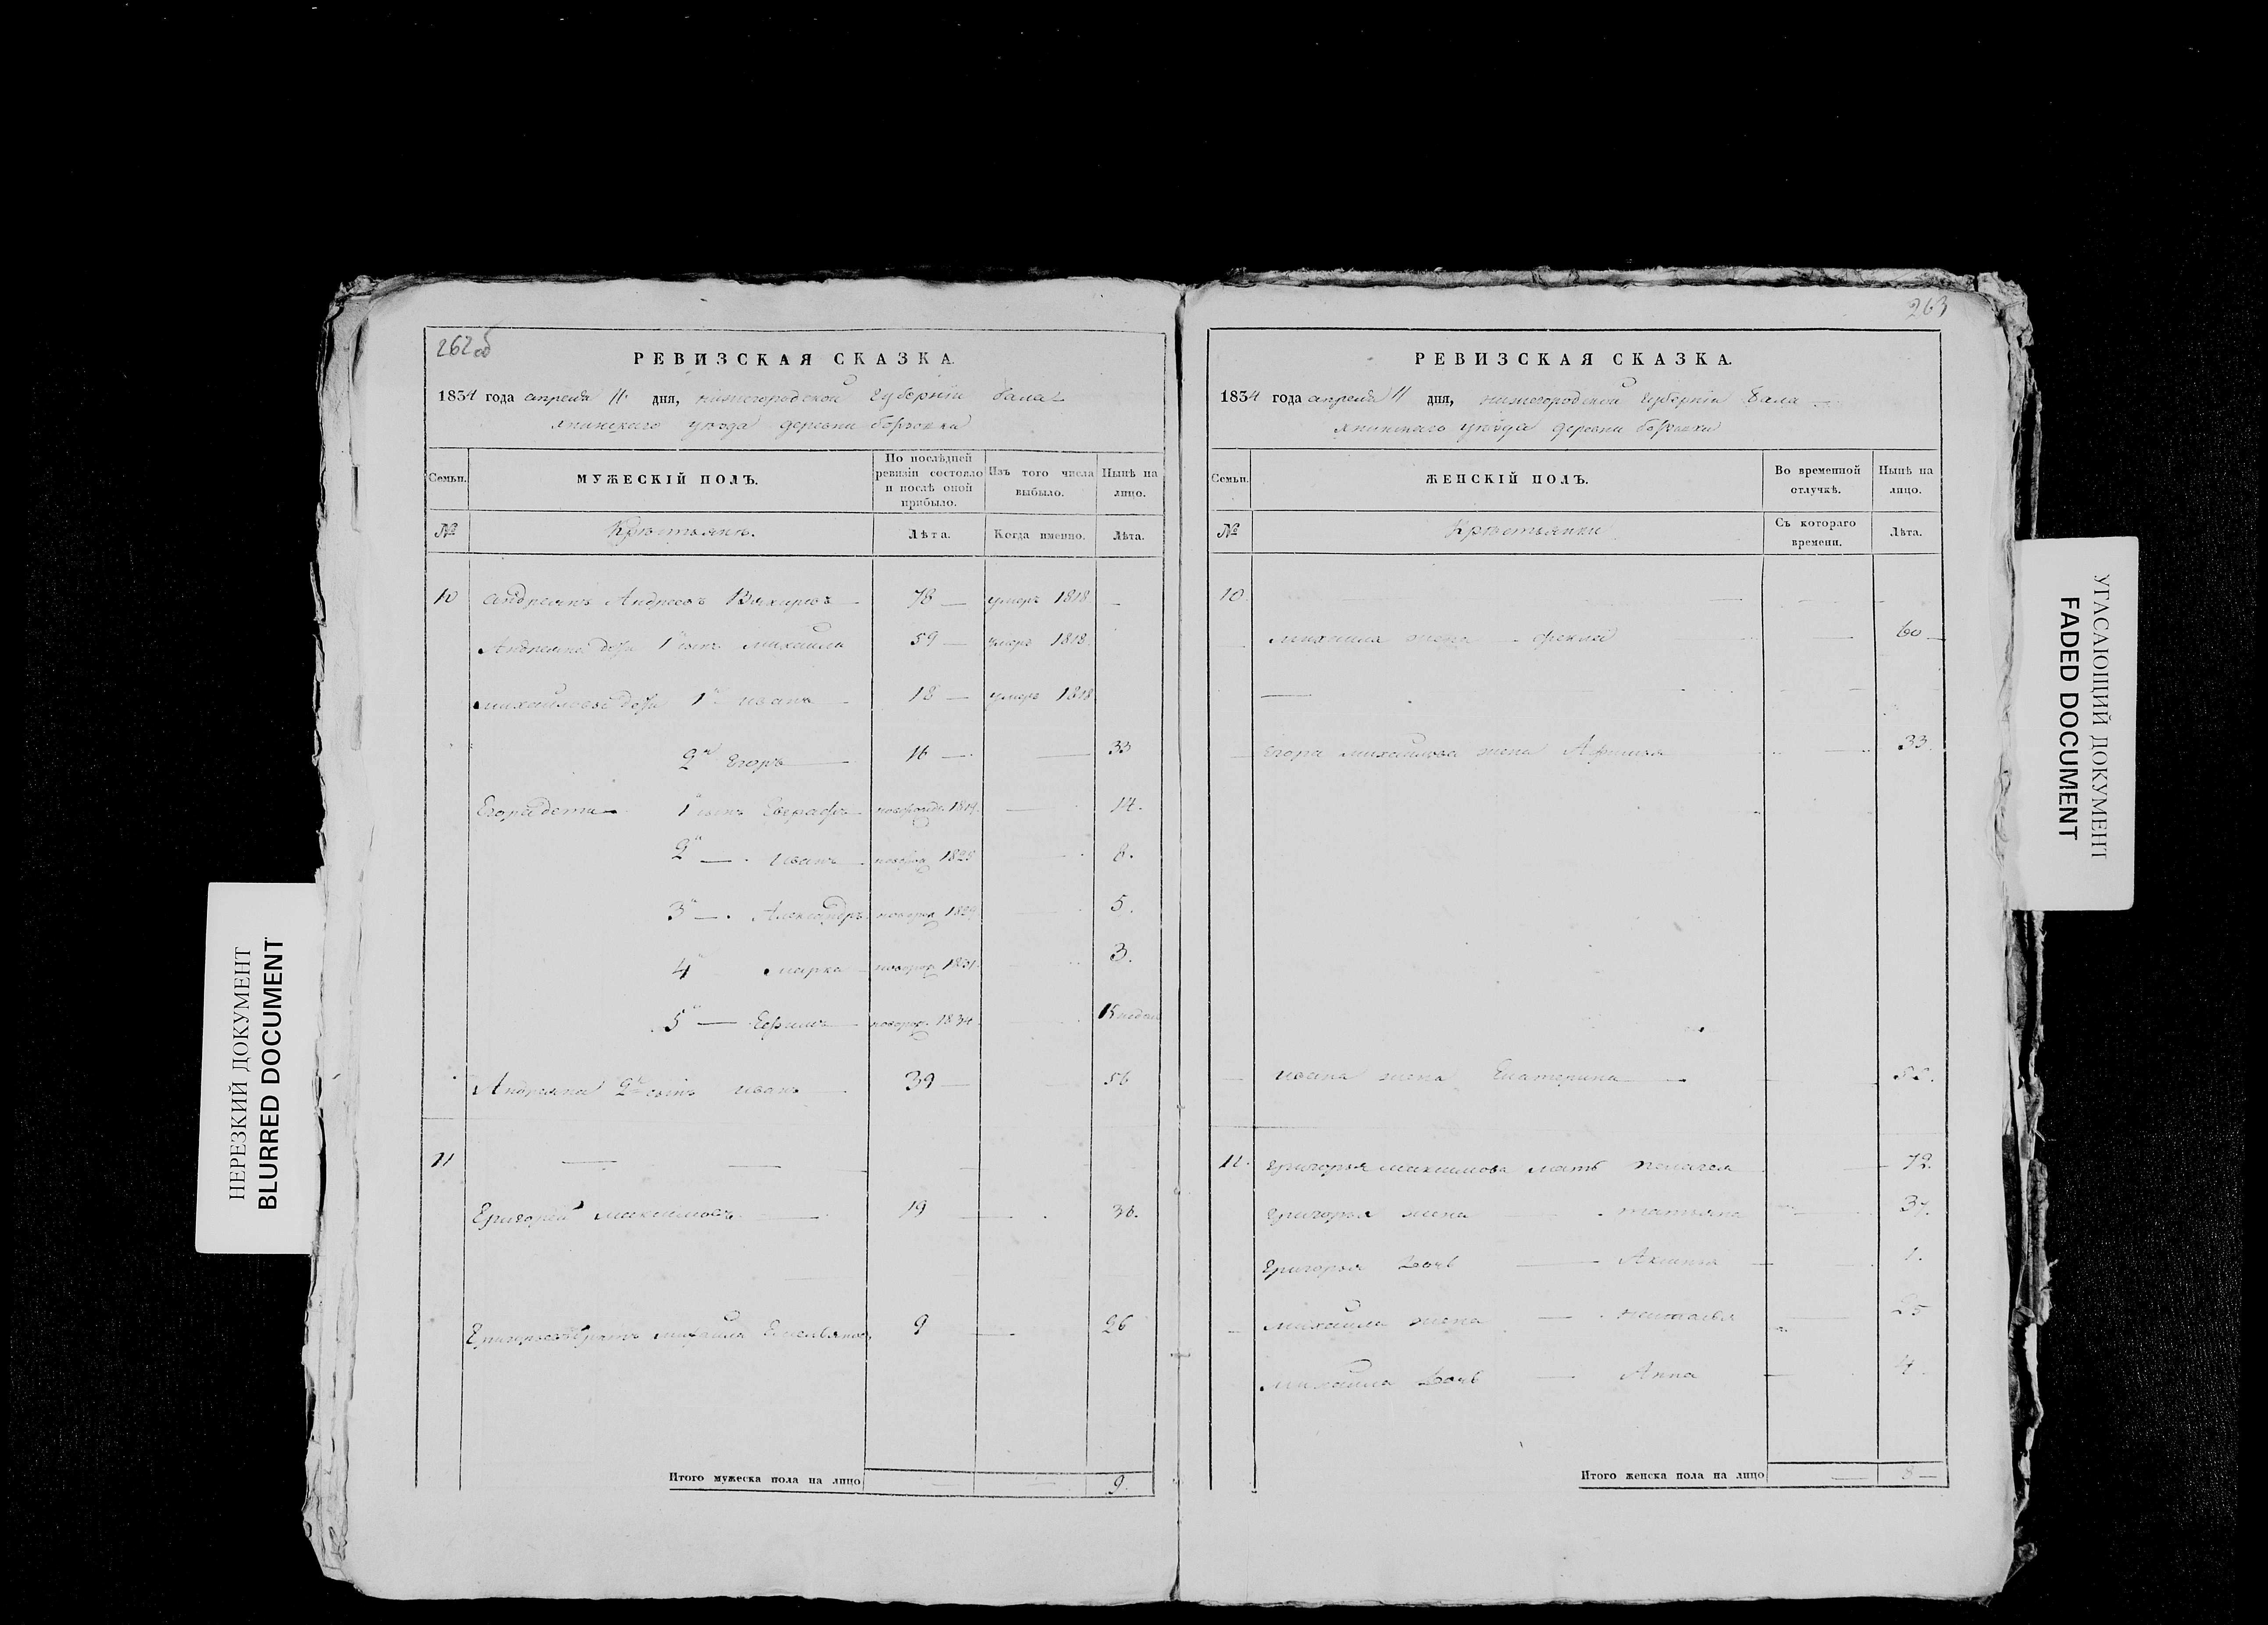 262 об
РЕВИЗСКАЯ СКАЗКА.
1834 года апреля 11 дня, нижегородской губернїи Бала-
хнинскаго уѣзда деревни
Семьи.
МУЖЕСКІЙ ПОЛЪ.
По послѣдней ревизіи состояло и послѣ оной прибыло.
Изъ того числа выбыло.
Нынѣ на лицо.
№
Крѣстьянъ.
Лѣта.
Когда именно.
Лѣта.
10 Андреянъ Андреевъ Вяхиревъ 78 — умеръ 1818 —
Андреяна 1й сынъ михайла 59 — умеръ 1818
михайловы 1й иванъ — 18 — умеръ 1818
2й Егоръ — 16 — — 33
Егора дети — 1й сынъ Евграфъ 14.
2й — иванъ новорож 8.
3й — Александръ новорож 1829 5.
4й марка новорож 1831. 3.
5й — Ефимъ новорож 1834 15 недель
Андреяна 2й сынъ иванъ — 39 — 56
11 — — —
Григорей максимовъ — 19 — 36.
Григорьевъ братъ михайла Емельяновъ 9 — 26
Итого мужеска пола на лицо — — 9.
263
РЕВИЗСКАЯ СКАЗКА.
1834 года апреля 11 дня, нижегородской губернїи Бала —
хнинскаго уѣзда деревни
Семьи.
ЖЕНСКІЙ ПОЛЪ.
Во временной отлучкѣ.
Нынѣ на лицо.
№
Крѣстьянки
Съ котораго времени.
Лѣта.
10. — — —
михаила жена — фекла — 60 —
—
Егора михайлова жена Афимья — 33.
ивана жена Екатерина —
11. Григорья максимова мать пелагея — 72.
Григорья жена — татьяна — 37.
Григорья Дочь — Аксинья — 1.
михайла жена — наталья — 25
михайла Дочь — Анна — 4.
Итого женска пола на лицо — 8 —
НЕРЕЗКИЙ ДОКУМЕНТ
BLURRED DOCUMENT
УГАСАЮЩИЙ ДОКУМЕНТ
FADED DOCUMENT